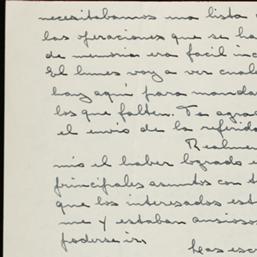 necesitabamos una lista
las operaciones que se ha
de memoria era facil inc
El lunes voy a ver cuale
hay aqui para manda
los que falten. Te agrad
el envio de la referida
Realmen
mio el haber logrado e
principales asuntos con t
que los interesados est
me y estaban ansioso
poderse ir.
Has esc